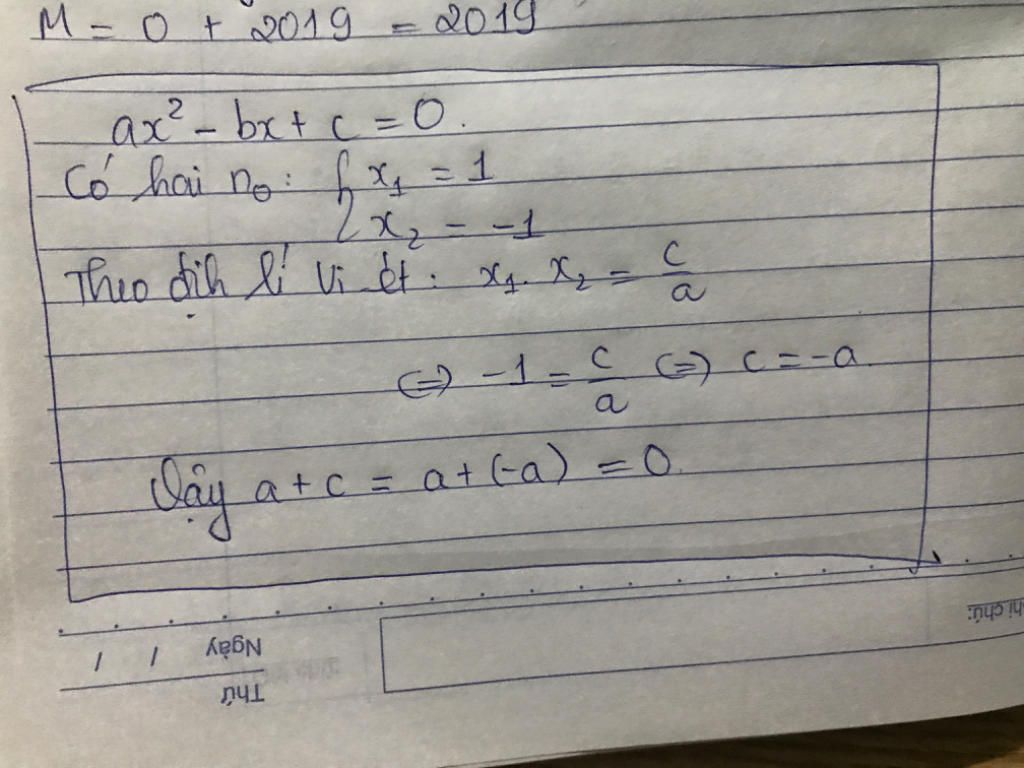 M = 0 + 2019 = 2019
ax² - bx + c = 0.
Có hai no: { x₁ = 1
x₂ = -1
Theo địh lí Vi ét: x₁. x₂ = c/a
(=) -1 = c/a (=) c = -a
Vậy a + c = a + (-a) = 0.
hi chú:
/ / Ngày
Thứ